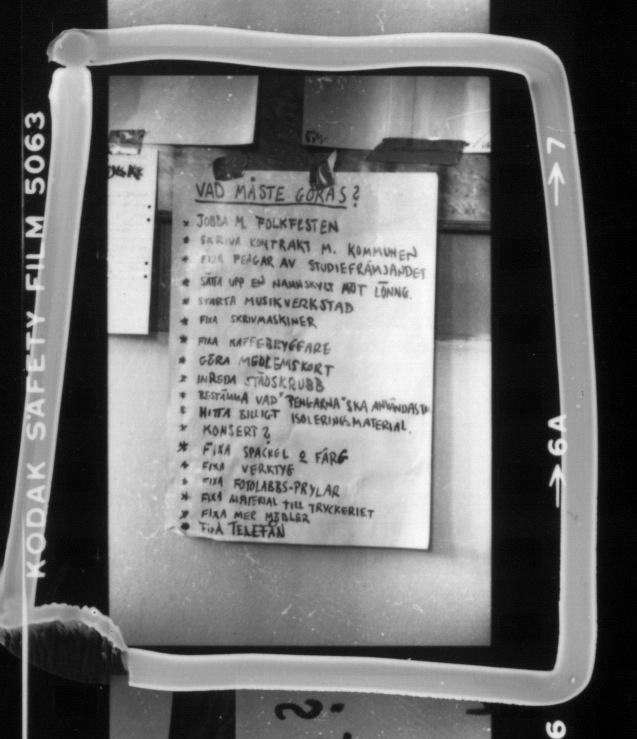 KODAK SAFETY FILM 5063
→7
→6A
6
VAD MÅSTE GÖRAS?
* JOBBA M. FOLKFESTEN
* SKRIVA KONTRAKT M. KOMMUNEN
* FIXA PENGAR AV STUDIEFRÄMJANDET
* SÄTTA UPP EN NAMNSKYLT MOT LÖNNG.
* STARTA MUSIKVERKSTAD
* FIXA SKRIVMASKINER
* FIXA KAFFEBRYGGARE
* GÖRA MEDLEMSKORT
* INREDA STÄDSKRUBB
* BESTÄMMA VAD "PENGARNA" SKA ANVÄNDAS
* HITTA BILLIGT ISOLERINGSMATERIAL.
* KONSERT?
* FIXA SPACKEL O FÄRG
* FIXA VERKTYG
* FIXA FOTOLABBS-PRYLAR
* FIXA MATERIAL TILL TRYCKERIET
* FIXA MER MÖBLER
* FIXA TELEFÅN